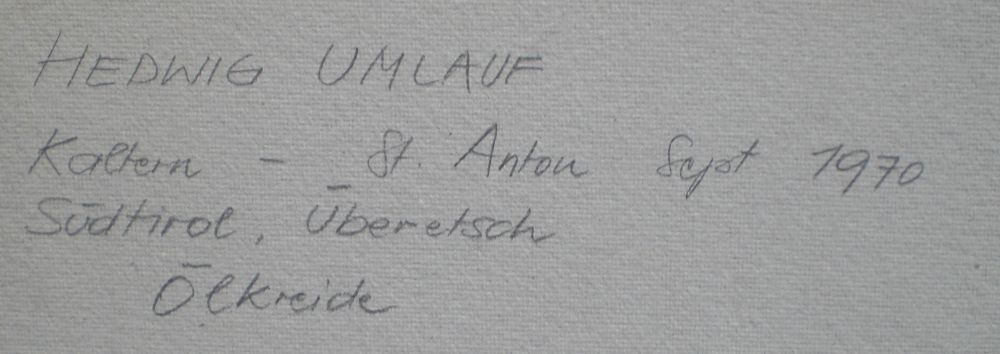 HEDWIG UMLAUF
Kaltern - St. Anton Sept 1970
Südtirol, Überetsch
Ölkreide